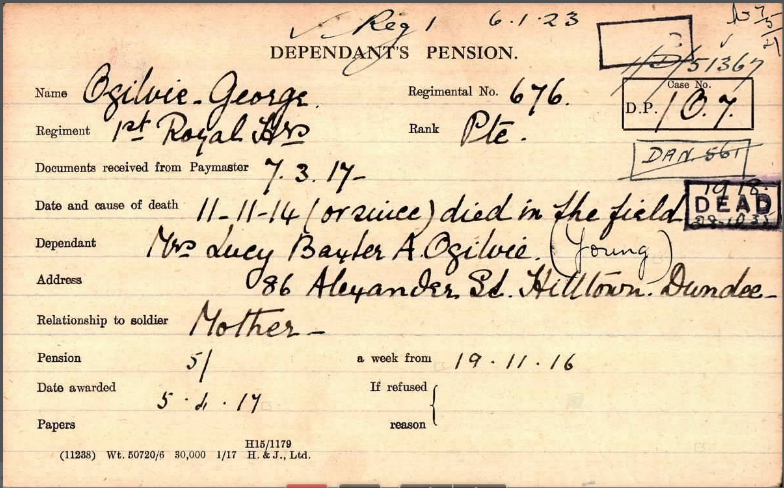 Reg 1 6.1.23
DEPENDANT'S PENSION.
51367
Name Ogilvie - George. Regimental No. 676.
Case No.
D.P. 1 O. 7.
Regiment 1st Royal Hrs Rank Pte.
DAN 561
Documents received from Paymaster 7.3.17-
1918.
DEAD
Date and cause of death 11-11-14 (or since) died in the field
Dependant Mrs Lucy Baxter A. Ogilvie. (Young)
Address 86 Alexander St. Hilltown. Dundee-
Relationship to soldier Mother-
Pension 5/ a week from 19.11.16
Date awarded 5.4.17 If refused
Papers reason
H15/1179
(11238) Wt. 50720/6 30,000 1/17 H. & J., Ltd.